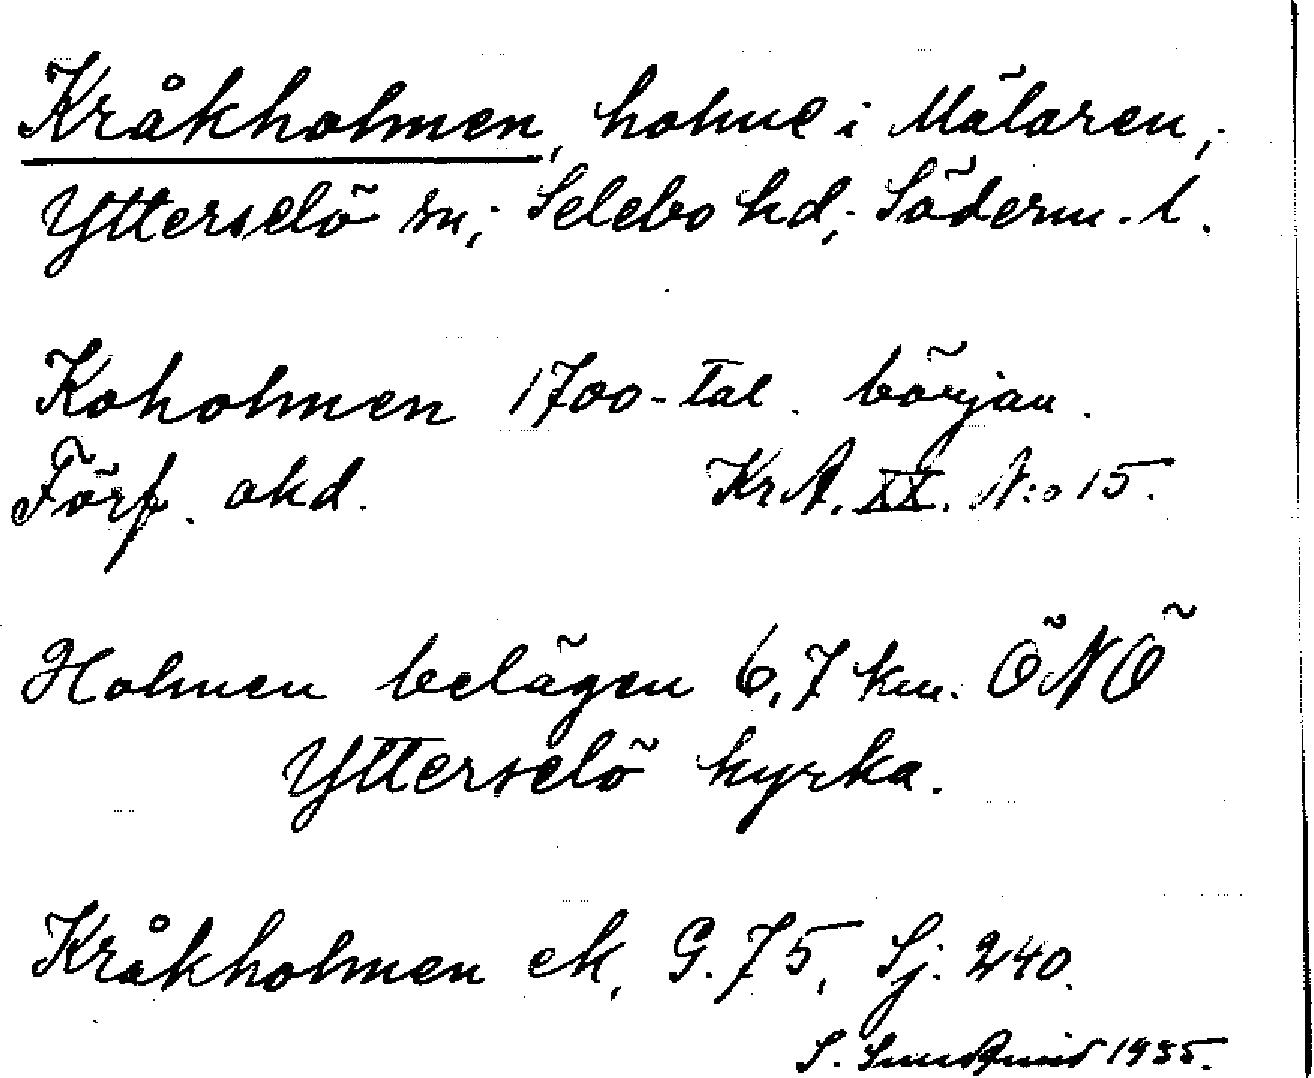 Kråkholmen, holme i Mälaren,
Ytterselö sn; Selebo hd; Söderm. l.
Koholmen 1700-tal. början.
Förf. okd. KrA. XX. N:o 15.
Holmen belägen 6,7 km. ÖNÖ
Ytterselö kyrka.
Kråkholmen ek, G. 75, Sj. 240.
S. 1935.